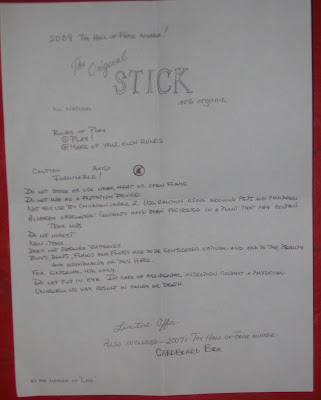 2009 Toy Hall of Fame Winner!
The Original
STICK
All Natural
100% organic
Rules of Play
① Play!
② Make up your own rules
Caution
Flammable!
Avoid
Do not store or use near heat or open flame
Do not use as a flotation device
Not for use by children under 2. Use caution using around pets and children
Allergen information: Contents have been processed in a plant that may contain
tree nuts
Do not ingest
Non-toxic
Does not require batteries
Bumps, dents, and be considered natural and add to the beauty
and individuality of this item.
For external use only
Do not put in eye. In case of accidental ingestion contact a physician
Unsupervised use may result in injury or death
Limited Offer
Also included - 2005 Toy Hall of Fame winner
Cardboard Box
By the makers of "